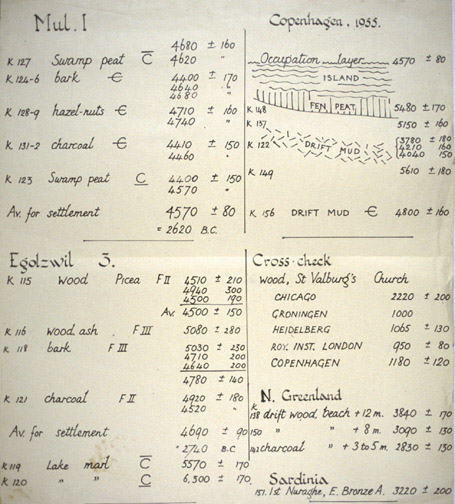 Mul. I
4680 ± 160
K 127 Swamp peat C̅ 4620 "
K 124-6 bark Є 4400 ± 170
4640 "
4680 "
K 128-9 hazel-nuts Є 4710 ± 160
4740 "
K 131-2 charcoal Є 4410 ± 150
4460 "
K 123 Swamp peat C 4400 ± 150
4570 "
Av. for settlement 4570 ± 80
= 2620 B.C.
Copenhagen. 1955.
Occupation layer 4570 ± 80
ISLAND
FEN PEAT
K 148 5480 ± 170
K 137 5150 ± 160
K 122 DRIFT MUD
3780 ± 180
4210 160
4040 150
K 149 5610 ± 180
K 156 DRIFT MUD Є 4800 ± 160
Egolzwil 3.
K 115 Wood Picea F II 4510 ± 210
4940 300
4500 190
Av. 4500 ± 150
K 116 Wood ash F III 5080 ± 280
K 118 bark F III 5030 ± 230
4710 200
4640 200
4780 ± 140
K 121 charcoal F II 4920 ± 180
4520 "
Av. for settlement 4690 ± 90
= 2740 B.C
K 119 Lake marl C̅ 5570 ± 170
K 120 " " C̅ 6,300 ± 170
Cross-check
Wood, St Valburg's Church
CHICAGO 2220 ± 200
GRONINGEN 1000
HEIDELBERG 1065 ± 130
ROY. INST. LONDON 950 ± 80
COPENHAGEN 1180 ± 120
N. Greenland
K
138 drift wood, beach + 12 m. 3840 ± 170
150 " " + 8 m. 3090 ± 130
142 charcoal " + 3 to 5 m. 2830 ± 130
Sardinia
151. 1st Nuraghe, E. Bronze A. 3220 ± 200